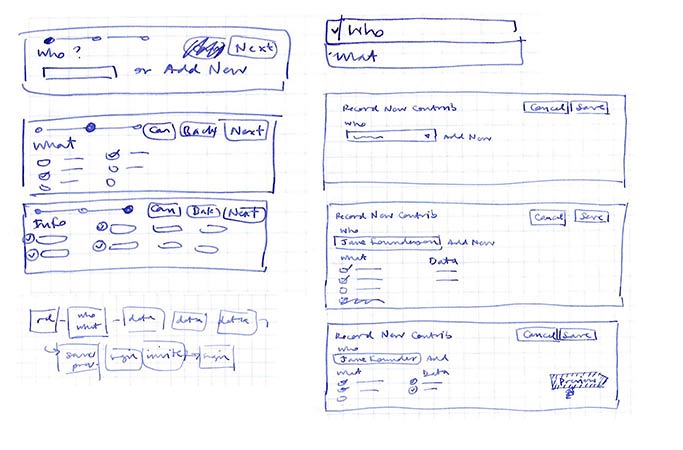 Who ?
Next
or Add New
Can Back Next
What
Can Next
Info
who
what
data data data
save
login invite login
Who
What
Record New Contrib
Cancel Save
Who
Add New
Record New Contrib
Cancel Save
Who
Jane Founderson Add New
What Data
Record New Contrib
Cancel Save
Who
Jane Founder Add
What Data